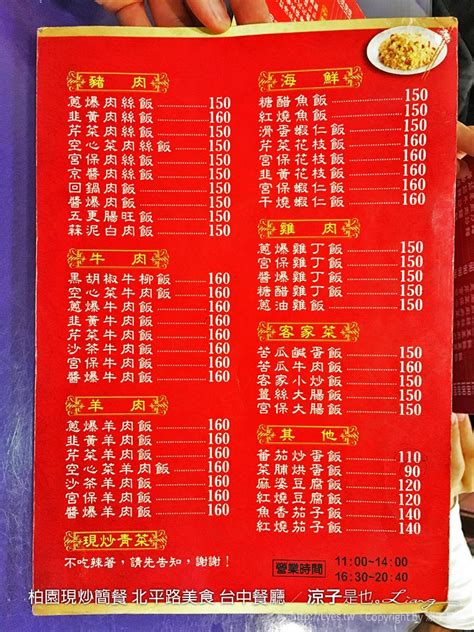 豬肉
蔥爆肉絲飯 150
韭黃肉絲飯 160
芹菜肉絲飯 150
空心菜肉絲飯 150
宮保肉絲飯 150
京醬肉絲飯 150
回鍋肉飯 150
醬爆肉飯 150
五更腸旺飯 150
蒜泥白肉飯 150
牛肉
黑胡椒牛柳飯 160
空心菜牛肉飯 160
蔥爆牛肉飯 160
韭黃牛肉飯 160
芹菜牛肉飯 160
沙茶牛肉飯 160
宮保牛肉飯 160
醬爆牛肉飯 160
羊肉
蔥爆羊肉飯 160
韭黃羊肉飯 160
芹菜羊肉飯 160
空心菜羊肉飯 160
沙茶羊肉飯 160
宮保羊肉飯 160
醬爆羊肉飯 160
現炒青菜
不吃辣著，請先告知，謝謝！
海鮮
糖醋魚飯 150
紅燒魚飯 150
滑蛋蝦仁飯 150
芹菜花枝飯 150
宮保花枝飯 150
韭黃花枝飯 160
宮保蝦仁飯 150
干燒蝦仁飯 150
雞肉
蔥爆雞丁飯 150
宮保雞丁飯 150
醬爆雞丁飯 150
糖醋雞丁飯 150
蔥油雞飯 150
客家菜
苦瓜鹹蛋飯 150
苦瓜牛肉飯 160
客家小炒飯 150
薑絲大腸飯 150
宮保大腸飯 150
其他
蕃茄炒蛋飯 110
菜脯烘蛋飯 90
麻婆豆腐飯 120
紅燒豆腐飯 120
魚香茄子飯 120
紅燒茄子飯 120
營業時間
11:00~14:00
16:30~20:40
柏園現炒簡餐 北平路美食 台中餐廳 / 涼子是也